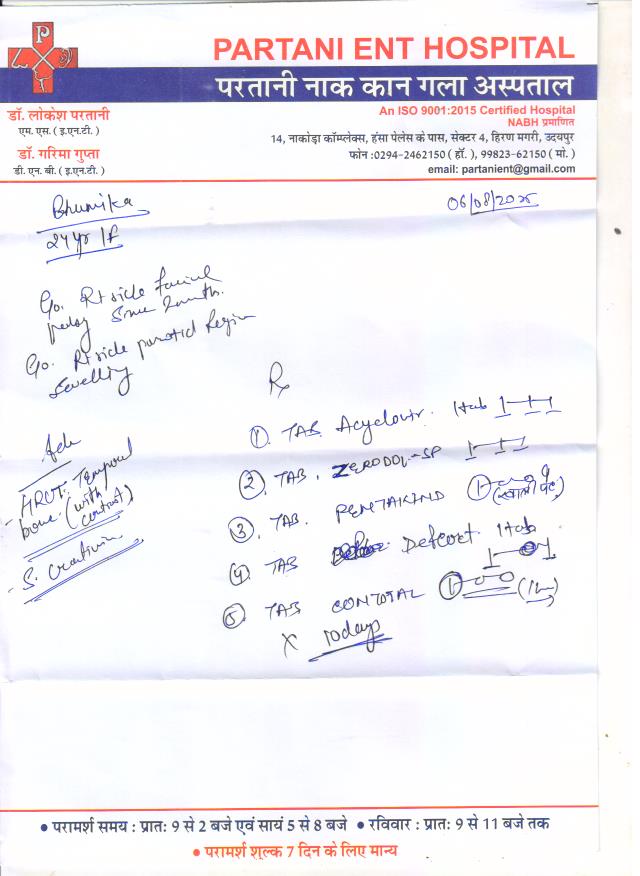 P
PARTANI ENT HOSPITAL
परतानी नाक कान गला अस्पताल
An ISO 9001:2015 Certified Hospital
NABH प्रमाणित
डॉ. लोकेश परतानी
एम. एस. ( इ.एन.टी. )
डॉ. गरिमा गुप्ता
डी. एन. बी. ( इ.एन.टी. )
14, नाकोड़ा कॉम्प्लेक्स, हंसा पेलेस के पास, सेक्टर 4, हिरण मगरी, उदयपुर
फोन :0294-2462150 ( हॉ. ), 99823-62150 ( मो. )
email: partanient@gmail.com
Bhumika
06/08/2025
24 yr / F
Rt side facial
palsy
Rt side parotid Region
Swelling
Rx
Adv
- HRCT Temporal
bone (with
contrast)
- S. Creatinine
① TAB Acyclovir 1tab 1-1-1
② TAB. ZERODOL-SP 1-1-1
③ TAB. PENTAKIND (खाली पेट)
④ TAB Defcort 1tab
⑤ TAB CONTOTAL 1-0-0
X 10 days
• परामर्श समय : प्रातः 9 से 2 बजे एवं सायं 5 से 8 बजे • रविवार : प्रातः 9 से 11 बजे तक
• परामर्श शुल्क 7 दिन के लिए मान्य